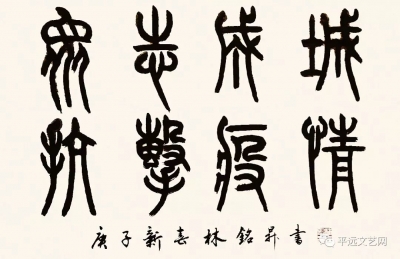 眾志成城
抗擊疫情
庚子新春林銘昇書
平远文艺网